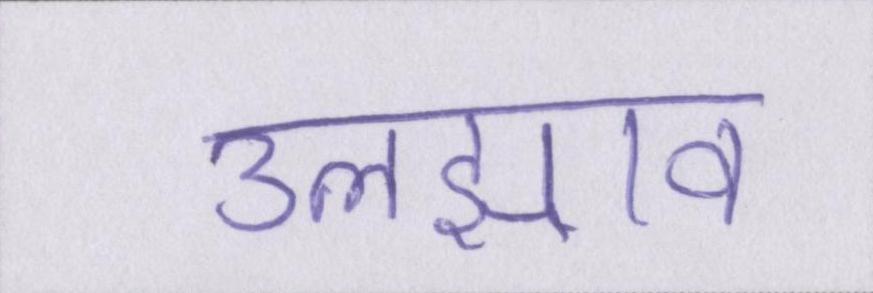 उलझाव